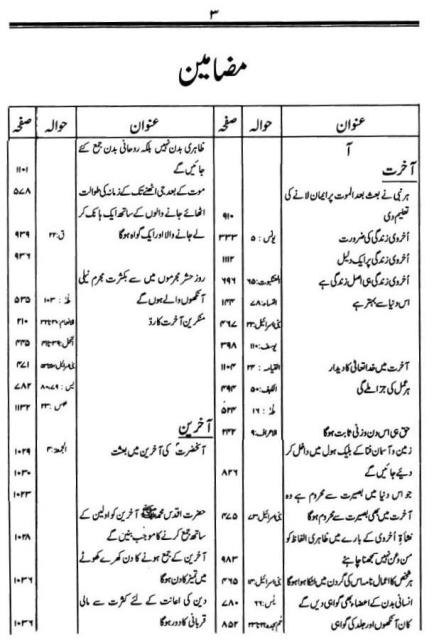 ۳
مضامین
عنوان حوالہ صفحہ
آ
آخرت
ہر نبی نے بعث بعد الموت پر ایمان لانے کی
تعلیم دی ۹۱۰
اُخروی زندگی کی ضرورت یونس : ۵ ۳۳۳
اُخروی زندگی پر ایک دلیل ۱۱۱۲
اُخروی زندگی ہی اصل زندگی ہے العنکبوت: ۶۵ ۶۹۶
اس دنیا سے بہتر ہے النساء: ۷۸ ۱۴۴
بنی اسرائیل: ۲۲ ۴۶۷
یوسف: ۱۱۰ ۳۹۸
آخرت میں خدا تعالیٰ کا دیدار القیامہ : ۲۴ ۱۱۰۴
ہر عمل کی جزا ملے گی الکہف: ۵۰ ۴۹۴
طٰہٰ : ۱۶ ۵۲۴
حق ہی اس دن وزنی ثابت ہوگا الاعراف: ۹ ۲۴۲
زمین و آسمان فنا کے بلیک ہول میں داخل کر
دیئے جائیں گے ۸۲۶
جو اس دنیا میں بصیرت سے محروم ہے وہ
آخرت میں بھی بصیرت سے محروم ہوگا بنی اسرائیل: ۷۳ ۴۷۵
نشاۃ اُخروی کے بارے میں ظاہری الفاظ کو
من و عن نہیں سمجھنا چاہئے ۹۸۳
ہر شخص کا اعمال نامہ اس کی گردن میں لٹکا ہوا ہوگا بنی اسرائیل: ۱۴ ۴۶۵
انسانی بدن کے اعضا بھی گواہی دیں گے یٰس: ۶۶ ۷۸۰
کان آنکھوں اور جلد کی گواہی ۸۵۲
عنوان حوالہ صفحہ
ظاہری بدن نہیں بلکہ روحانی بدن جمع کئے
جائیں گے ۱۱۰۱
موت کے بعد جی اٹھنے تک کے زمانہ کی طوالت ۵۷۸
اٹھائے جانے والوں کے ساتھ ایک ہانک کر
لے جانے والا اور ایک گواہ ہوگا ق: ۲۲ ۹۳۹
۹۳۶
روز حشر مجرموں میں سے بکثرت مجرم نیلی
آنکھوں والے ہوں گے طٰہٰ : ۱۰۳ ۵۳۵
منکرین آخرت کا رد ۲۱۰
۴۴۵
۴۷۱
یٰس: ۷۹،۸۰ ۷۸۲
۱۱۳۲
آخرین
آنحضرتؐ کی آخرین میں بعثت الجمعۃ: ۴ ۱۰۲۹
۱۰۳۰
۱۰۲۳
حضرت اقدس محمد ﷺ آخرین کو اولین کے
ساتھ جمع کرنے کا موجب بنیں گے ۱۰۲۸
آخرین کے جمع ہونے کا دن کھرے کھوٹے
میں تمیز کا دن ہوگا ۱۰۳۶
دین کی اعانت کے لئے کثرت سے مالی
قربانی کا دور ہوگا ۱۰۳۶